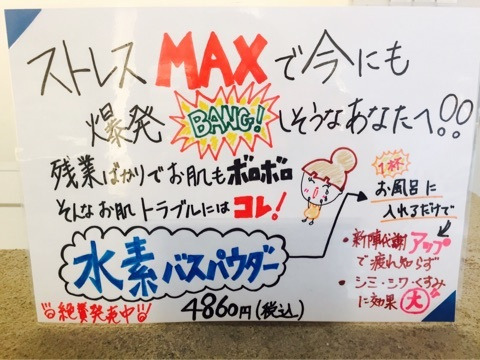 ストレスMAXで今にも
爆発 BANG! しそうなあなたへ!!
残業ばかりでお肌もボロボロ
そんなお肌トラブルにはコレ!
水素バスパウダー
4860円(税込)
絶賛発売中!!
1杯
お風呂に
入れるだけで
・新陳代謝アップ
で疲れ知らず
・シミ・シワ・くすみ
に効果大